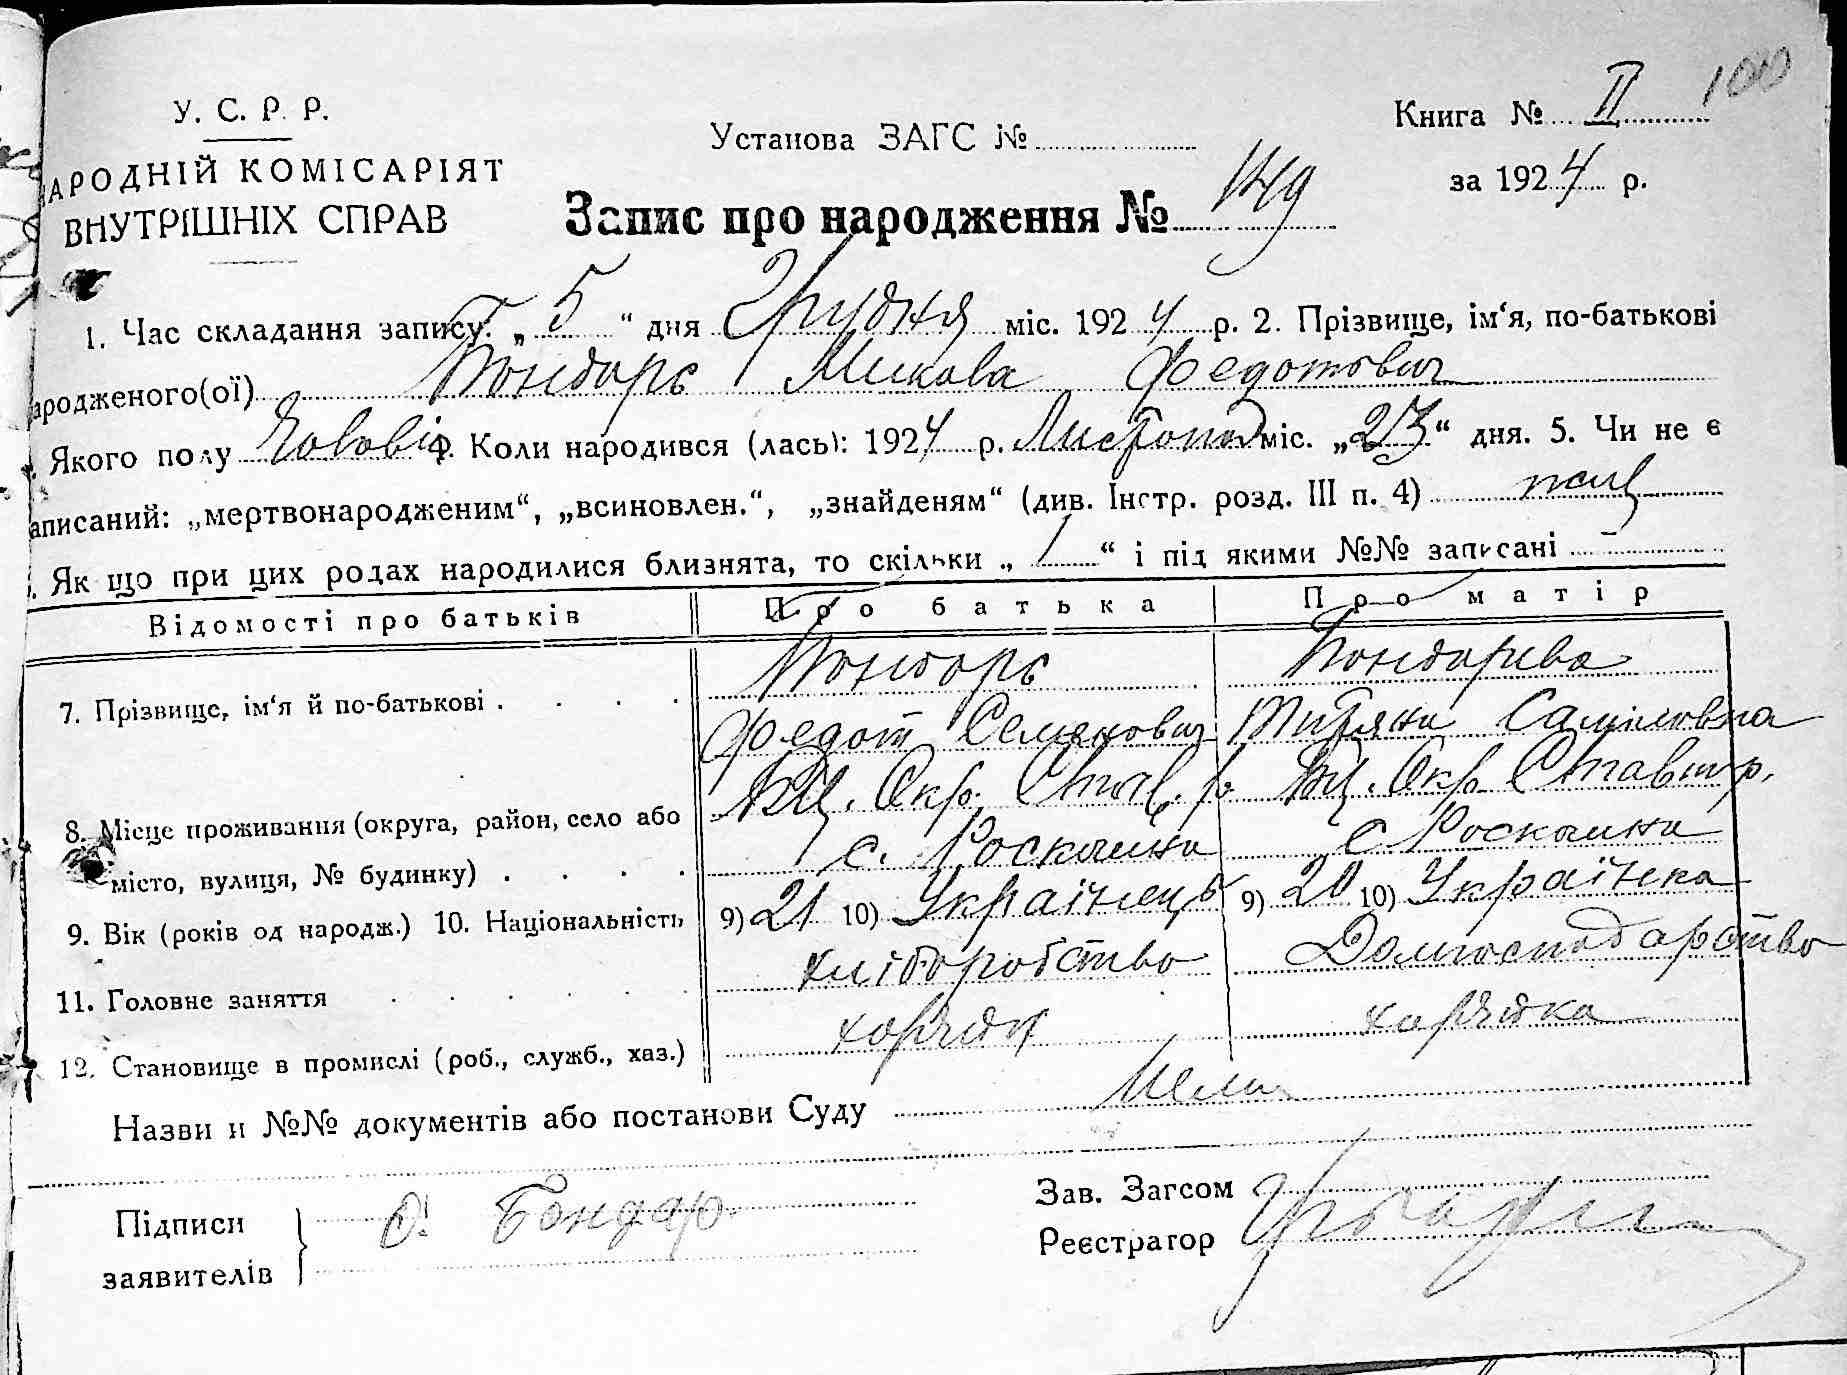 100
У. С. Р. Р.
АРОДНІЙ КОМІСАРІЯТ
ВНУТРІШНІХ СПРАВ
Установа ЗАГС №
Книга № II
за 1924 р.
Запис про народження № 149
1. Час складання запису: „5“ дня Грудня міс. 1924 р. 2. Прізвище, ім‘я, по-батькові
ародженого(ої) Бондарь Микола Федотович
. Якого полу Чоловіч. Коли народився (лась): 1924 р. Листопад міс. „23“ дня. 5. Чи не є
аписаний: „мертвонародженим“, „всиновлен.“, „знайденям“ (див. Інстр. розд. III п. 4)
. Як що при цих родах народилися близнята, то скільки „1“ і під якими №№ записані
Відомості про батьків Про батька Про матір
7. Прізвище, ім‘я й по-батькові . . . . Бондарь Бондарева
Федот Семенович Титяна Саміловна
8. Місце проживання (округа, район, село або БЦ. Окр. Став. р. БЦ. Окр. Ставищ р.
місто, вулиця, № будинку) . . . . с. Роскошна с Роскошна
9. Вік (років од народж.) 10. Національність 9) 21 10) Українець 9) 20 10) Українка
11. Головне заняття . . . . . . хліборобство Домгосподарство
12. Становище в промислі (роб., служб., хаз.) хазяїн хазяйка
Назви и №№ документів або постанови Суду
Підписи
заявителів
Ф. Бондар.
Зав. Загсом
Реєстратор